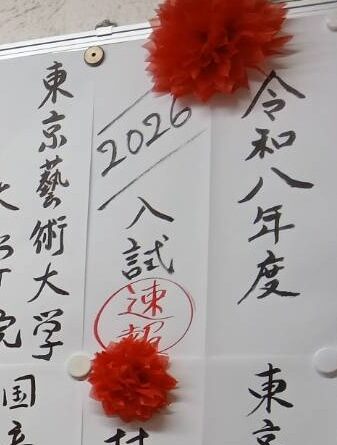 令和八年度
東京
2026
入試
速報
東京藝術大学
大学院
国